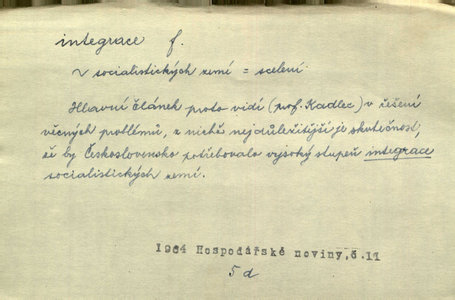 integrace f.
~ socialistických zemí = scelení
Hlavní článek proto vidí (prof. Kadlec) v řešení
věcných problémů, z nichž nejdůležitější je skutečnost,
že by Československo potřebovalo vysoký stupeň integrace
socialistických zemí.
1964 Hospodářské noviny, č. 11
5 d